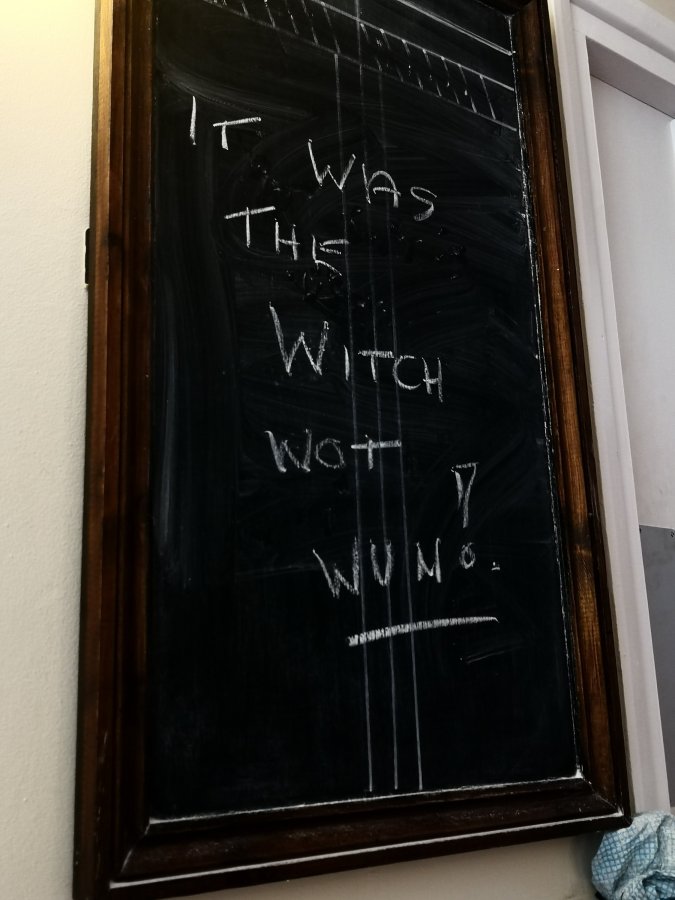 IT WAS
THE
WITCH
WOT
WUN!.